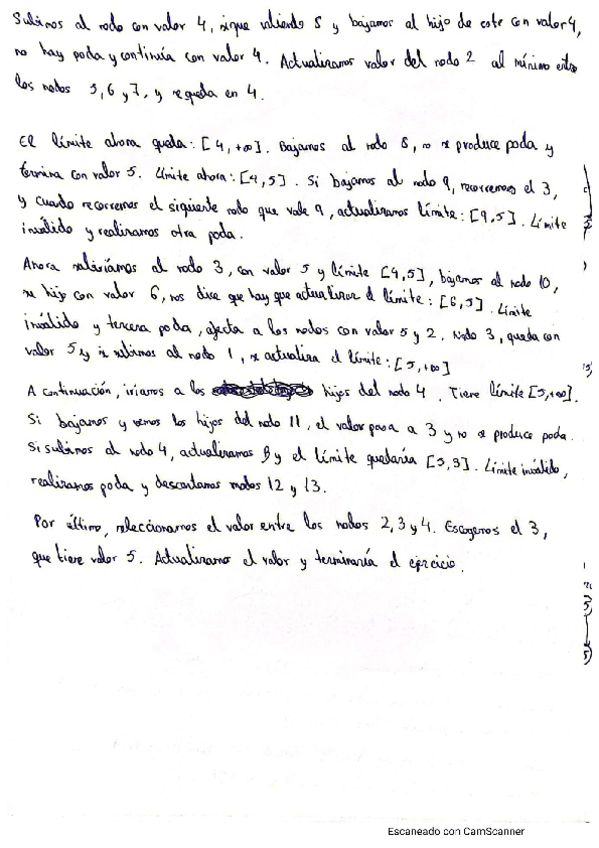 Subimos al nodo con valor 4, sigue valiendo 5 y bajamos al hijo de este con valor 4,
no hay poda y continúa con valor 4. Actualizamos valor del nodo 2 al mínimo entre
los nodos 5, 6 y 7, y se queda en 4.
El límite ahora queda: [4, +∞]. Bajamos al nodo 8, no se produce poda y
termina con valor 5. Límite ahora: [4,5]. Si bajamos al nodo 9, recorremos el 3,
y cuando recorremos el siguiente nodo que vale 9, actualizamos límite: [9,5]. Límite
inválido y realizamos otra poda.
Ahora subiríamos al nodo 3, con valor 5 y límite [4,5], bajamos al nodo 10,
su hijo con valor 6, nos dice que hay que actualizar el límite: [6,5]. Límite
inválido y tercera poda, afecta a los nodos con valor 5 y 2. Nodo 3, queda con
valor 5 y si subimos al nodo 1, se actualiza el límite: [5,+∞]
A continuación, iríamos a los hijos del nodo 4. Tiene límite [5,+∞].
Si bajamos y vemos los hijos del nodo 11, el valor pasa a 3 y no se produce poda.
Si subimos al nodo 4, actualizamos β y el límite quedaría [5,3]. Límite inválido,
realizamos poda y descartamos nodos 12 y 13.
Por último, seleccionamos el valor entre los nodos 2, 3 y 4. Escogemos el 3,
que tiene valor 5. Actualizamos el valor y terminaría el ejercicio.
Escaneado con CamScanner